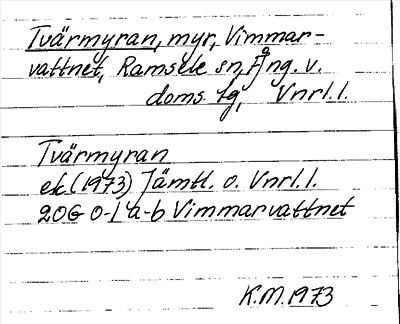 Tvärmyran, myr, Vimmar-
vattnet, Ramsele sn, Ång. v.
doms. tg, Vnrl. l.
Tvärmyran
ek. (1973) Jämtl. o. Vnrl. l.
20G 0-1 a-b Vimmarvattnet
K.M. 1973